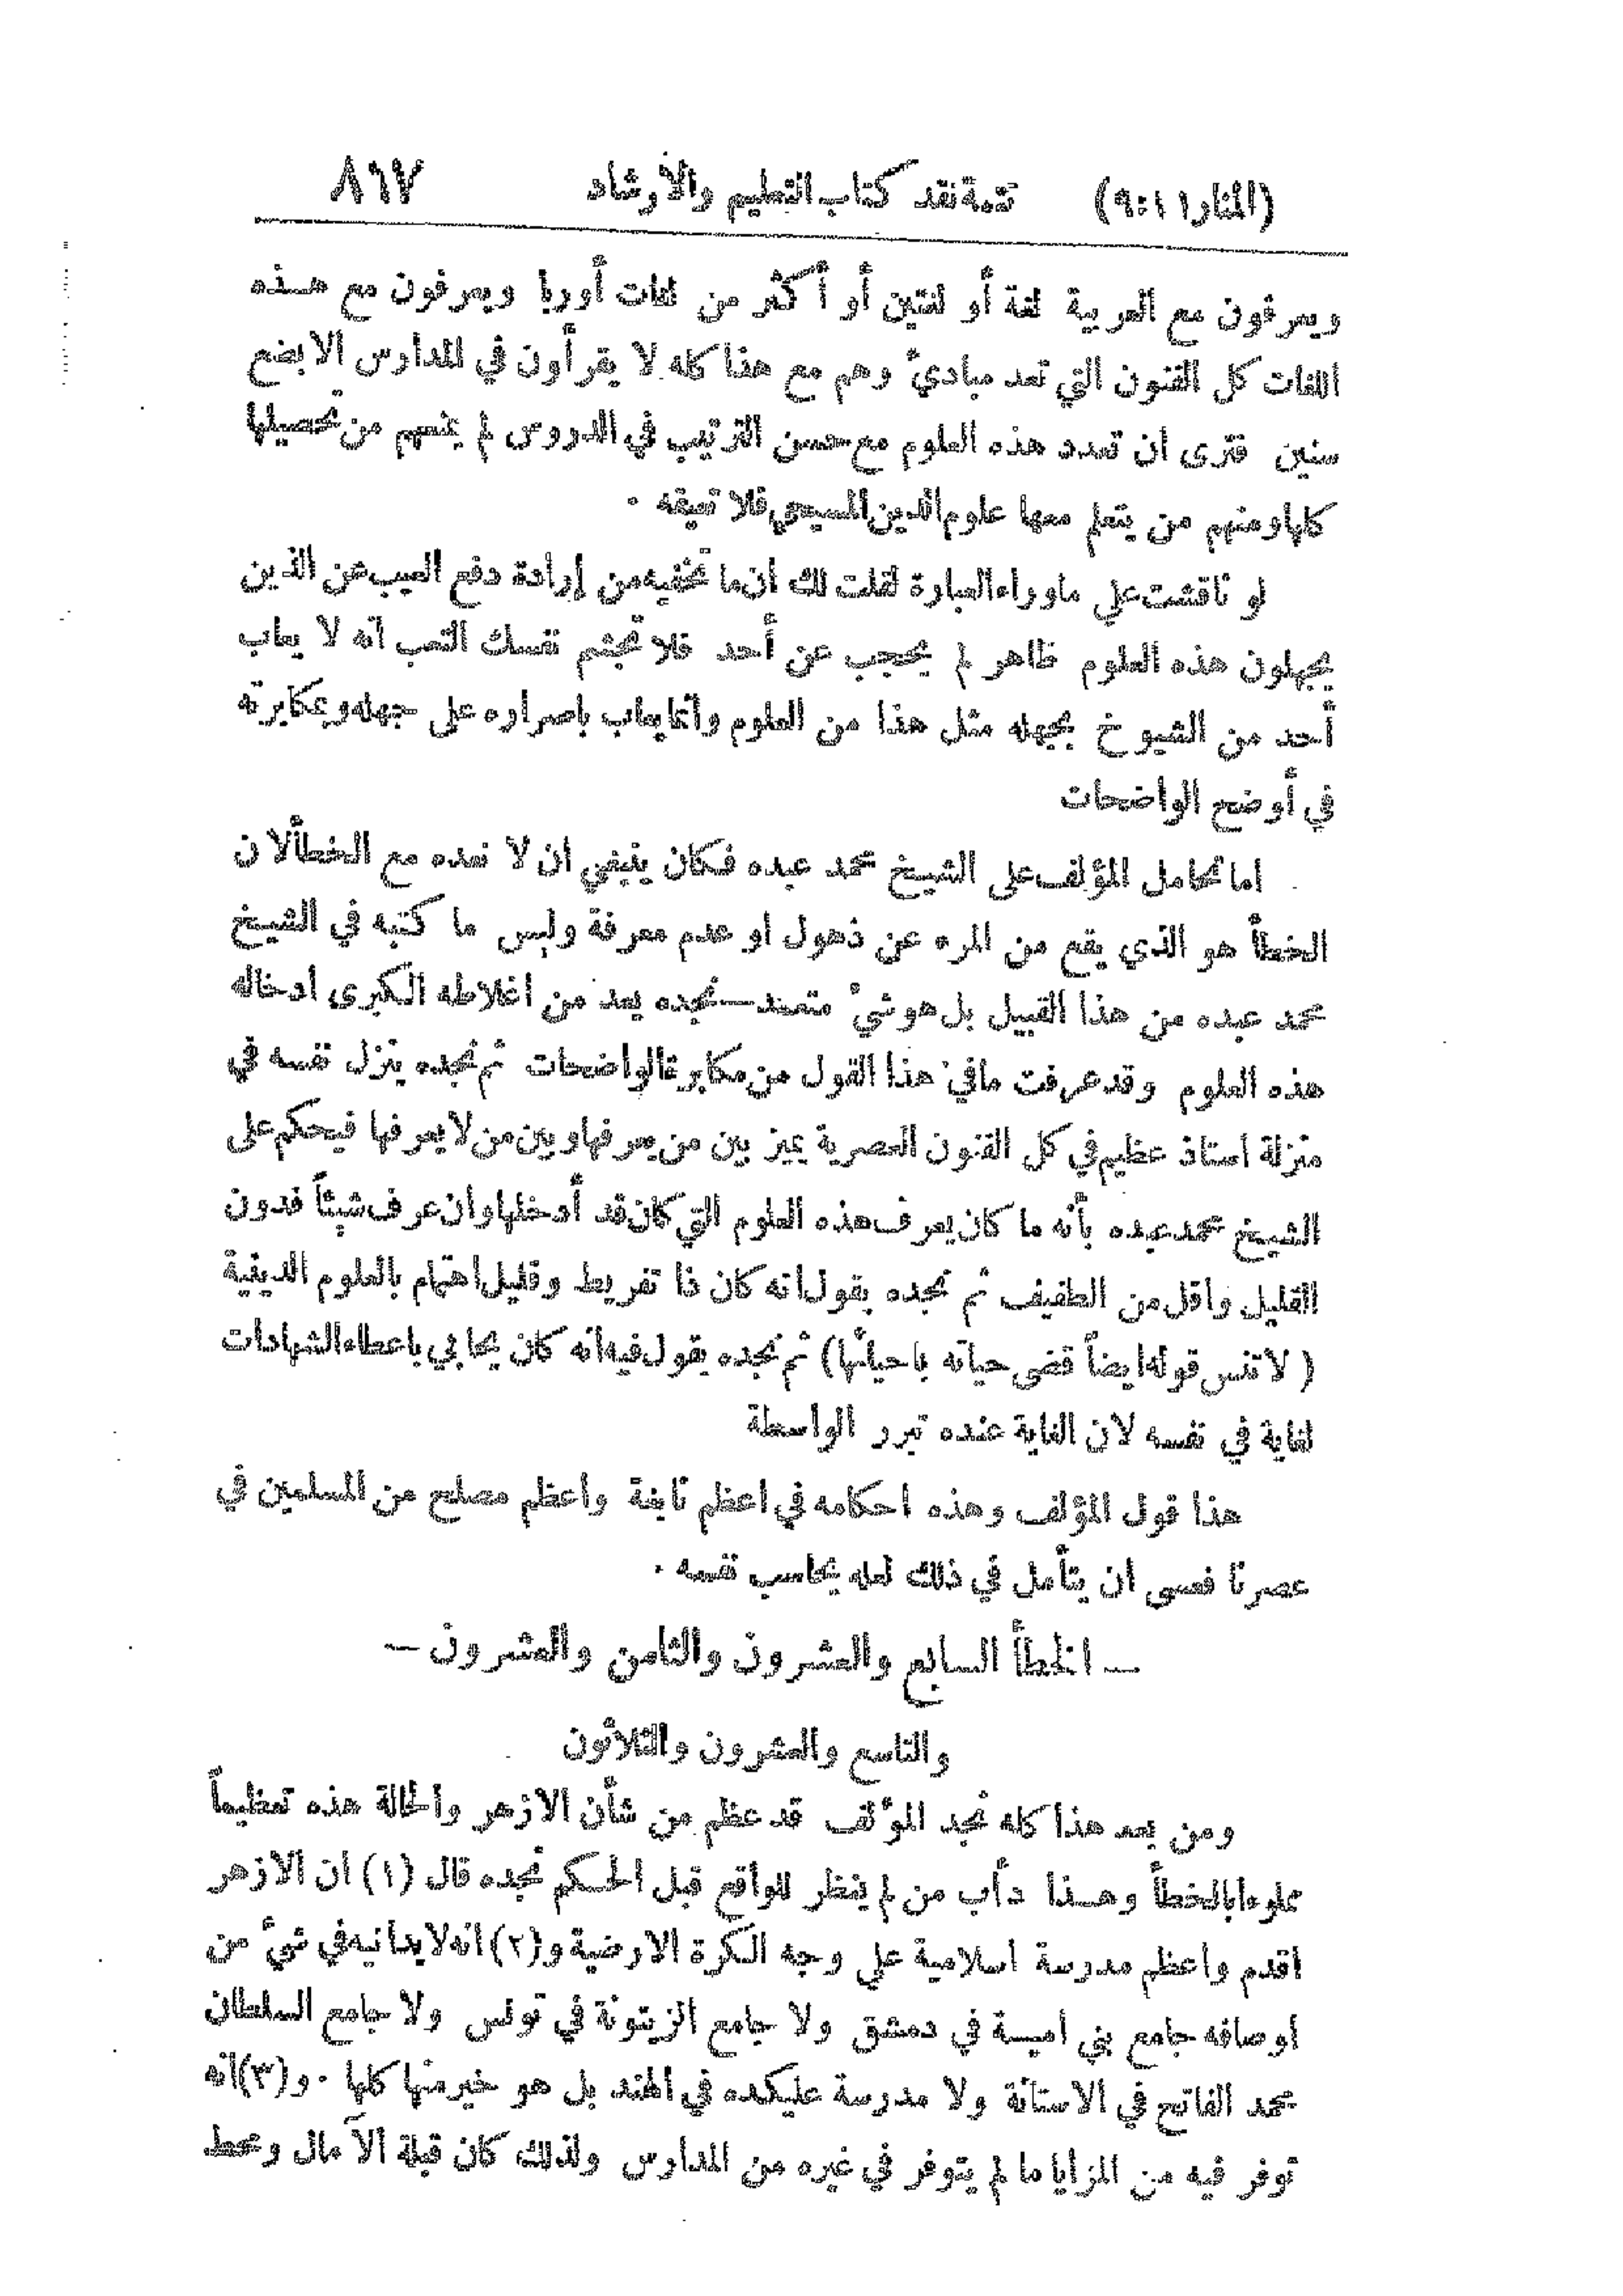 (المنار ١١:٩) تتمة نقد كتاب التعليم والأرشاد ٨٦٧
ويعرفون مع العربية لغة أو لغتين أو أكثر من لغات أوربا ويعرفون مع هذه
اللغات كل الفنون التي تعد مبادئ وهم مع هذا كله لا يقرأون في المدارس الا بضع
سنين فترى ان تعدد هذه العلوم مع حسن الترتيب في الدروس لم يمنعهم من تحصيلها
كلها ومنهم من يتعلم معها علوم الدين المسيحي فلا تعيقه ٠
لو ناقشت على ماوراء العبارة لقلت لك ان ما تخفيه من إرادة دفع العيب عن الذين
يجهلون هذه العلوم ظاهر لم يحجب عن أحد فلا تجشم نفسك التعب انه لا يعاب
أحد من الشيوخ بجهله مثل هذا من العلوم وانما يعاب باصراره على جهله وبمكابرته
في أوضح الواضحات
اما تحامل المؤلف على الشيخ محمد عبده فكان ينبغي ان لا نعده مع الخطأ لان
الخطأ هو الذي يقع من المرء عن ذهول او عدم معرفة وليس ما كتبه في الشيخ
محمد عبده من هذا القبيل بل هو شيء متعمد — نجده يعد من اغلاطه الكبرى ادخاله
هذه العلوم وقد عرفت مافي هذا القول من مكابرة الواضحات ثم نجده ينزل نفسه في
منزلة استاذ عظيم في كل الفنون العصرية يميز بين من يعرفها وبين من لا يعرفها فيحكم على
الشيخ محمد عبده بأنه ما كان يعرف هذه العلوم التي كان قد أدخلها وان عرف شيئاً فدون
القليل واقل من الطفيف ثم نجده يقول انه كان ذا تفريط وقليل اهتمام بالعلوم الدينية
( لا تنس قوله ايضاً قضى حياته باحيائها) ثم نجده يقول فيه انه كان يحابي باعطاء الشهادات
لغاية في نفسه لان الغاية عنده تبرر الواسطة
هذا قول المؤلف وهذه احكامه في اعظم نابغة واعظم مصلح من المسلمين في
عصرنا فعسى ان يتأمل في ذلك لعله يحاسب نفسه ٠
— الخطأ السابع والعشرون والثامن والعشرون —
والتاسع والعشرون والثلاثون
ومن بعد هذا كله نجد المؤلف قد عظم من شأن الازهر والحالة هذه تعظيماً
مملوءا بالخطأ وهذا دأب من لم ينظر للواقع قبل الحكم نجده قال (١) ان الازهر
اقدم واعظم مدرسة اسلامية على وجه الكرة الارضية و(٢) انه لا يدانيه في شيء من
اوصافه جامع بني امية في دمشق ولا جامع الزيتونة في تونس ولا جامع السلطان
محمد الفاتح في الاستانة ولا مدرسة عليكده في الهند بل هو خير منها كلها ٠ و(٣) انه
توفر فيه من المزايا ما لم يتوفر في غيره من المدارس ولذلك كان قبلة الآمال ومحط